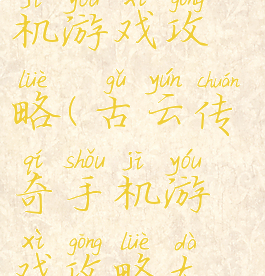 jī yóu xì gōng
机游戏攻
lüè gǔ yún chuán
略(古云传
qí shǒu jī yóu
奇手机游
xì gōng lüè dà
戏攻略大